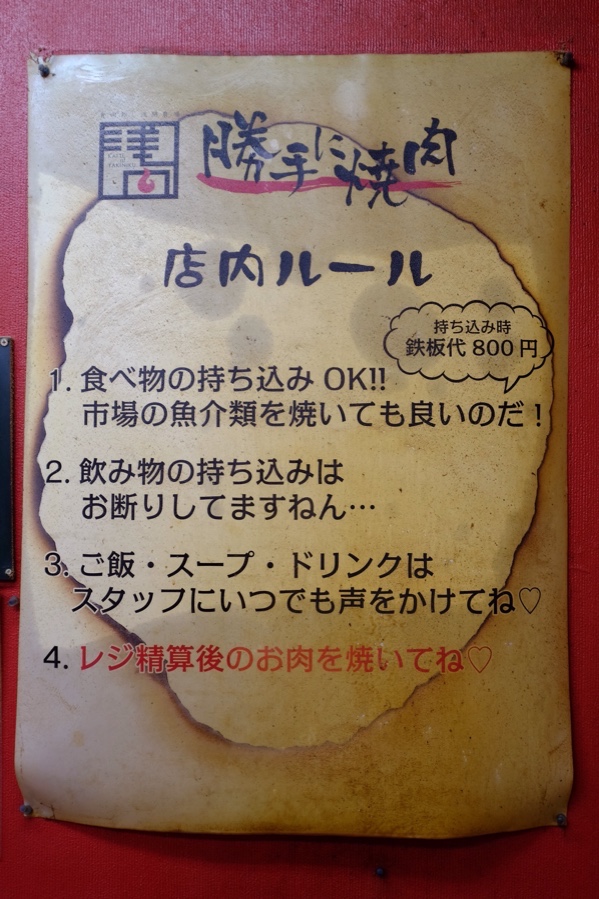 勝手に焼肉
店内ルール
持ち込み時
鉄板代800円
1. 食べ物の持ち込みOK!!
市場の魚介類を焼いても良いのだ！
2. 飲み物の持ち込みは
お断りしてますねん…
3. ご飯・スープ・ドリンクは
スタッフにいつでも声をかけてね♡
4. レジ精算後のお肉を焼いてね♡